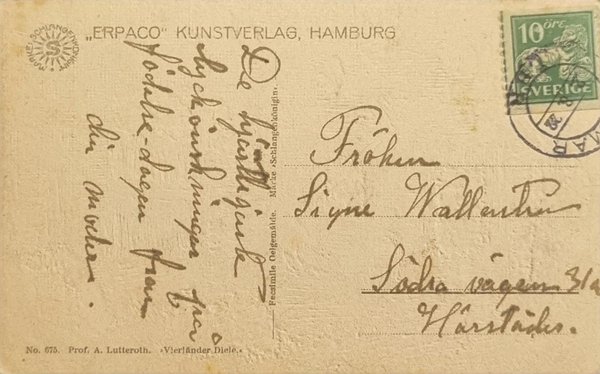 „ERPACO“ KUNSTVERLAG, HAMBURG
MARKE SCHLANGENKÖNIGIN
S
10 ÖRE
SVERIGE
MAR
De hjärtligaste
lyckönskningar på
födelse-dagen från
din moder.
Facsimile Oelgemälde. Marke »Schlangenkönigin«
Fröken
Signe Wallentin
Södra vägen 31a
Härstädes.
No. 675. Prof. A. Lutteroth. »Vierländer Diele.«